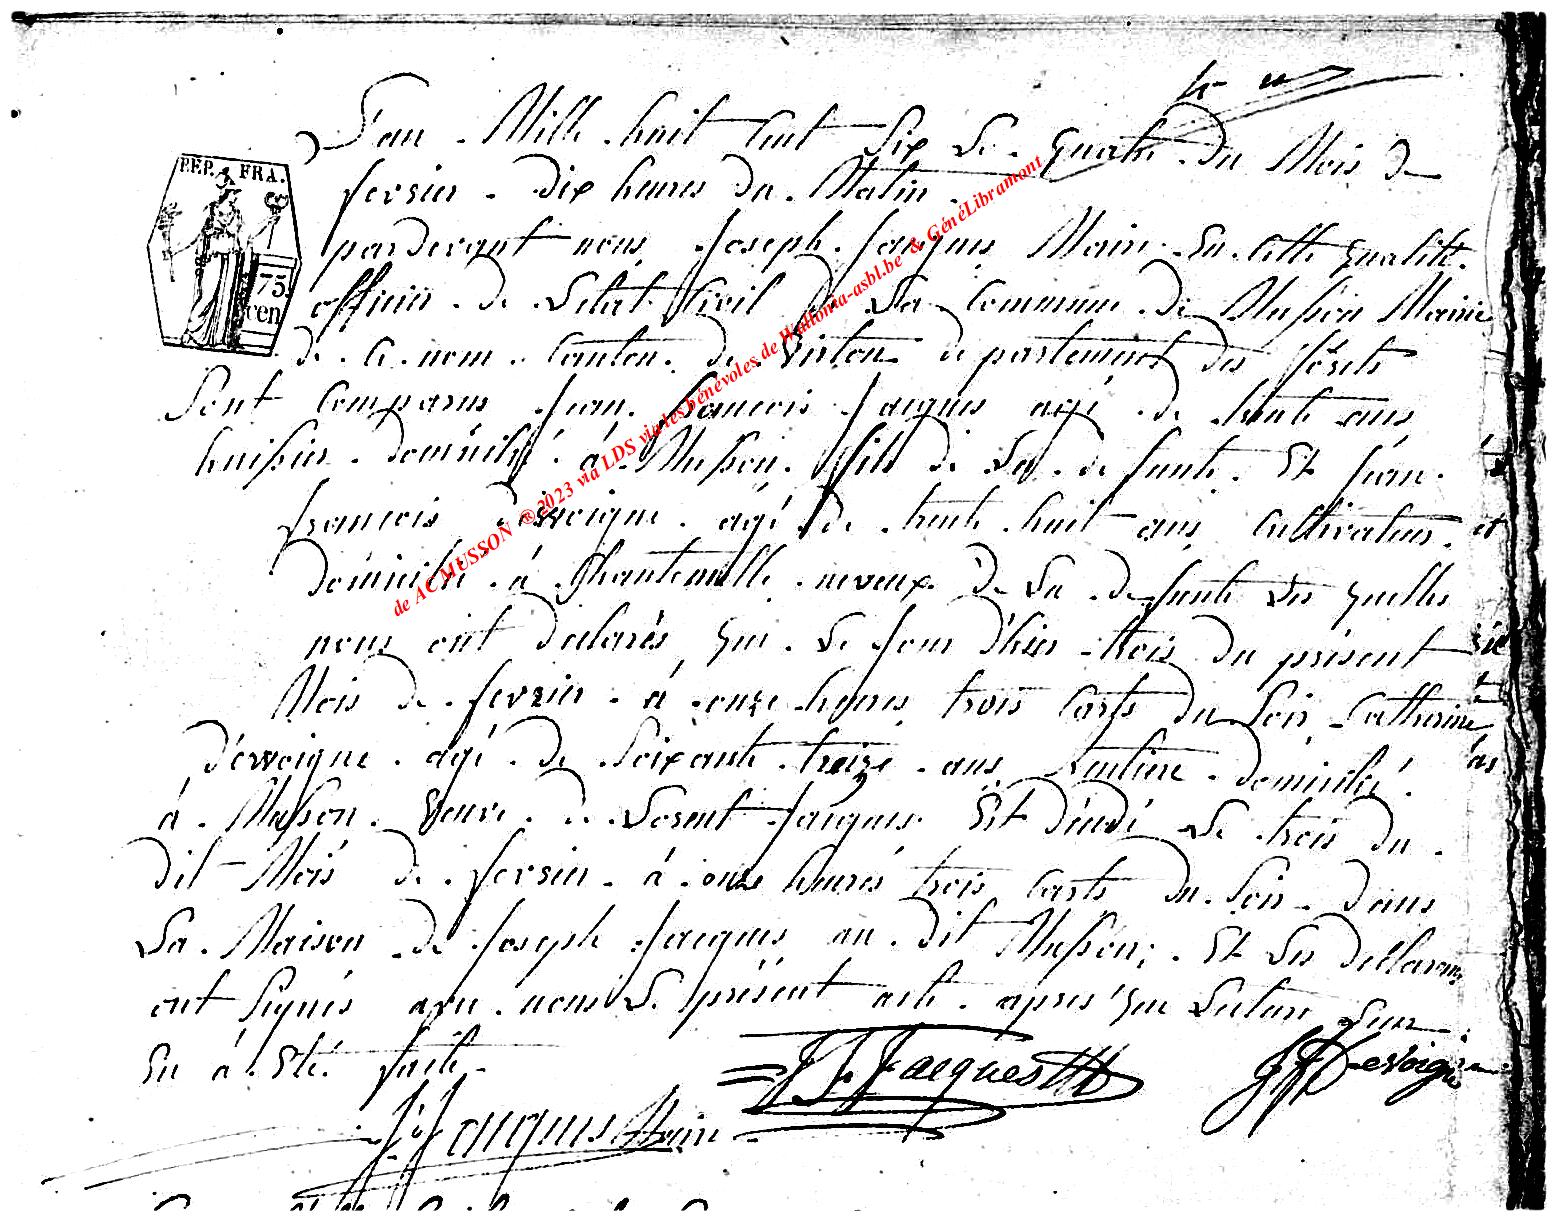 4 m
L'an Mille huit Cent Six Le Quatre du Mois De
fevrier dix heures du Matin
pardevant nous Joseph Jacques Maire En Cette qualité
officier de L'etat Civil de La Commune de Musson Mairie
de Ce nom Canton de Virton departement des forêts
Sont Comparus Jean francois Jacques agé de trente ans
huissier domicilié à Musson fils de La defunte Et Jean
francois Dewoigne agé de trente huit ans Cultivateur
domicilié à Chantemelle neveux de La defunte Les quelles
nous ont declarés que Le Jour d'hier trois du présent
Mois de fevrier à onze heures trois Carts du Soir Catherine
Dewoigne agé de Soixante treize ans domicilié
à Musson Veuve de Lorent Jacques Est décédé Le trois du
dit Mois de fevrier à onze heures trois Carts du Soir dans
La Maison de Joseph Jacques au dit Musson; Et Les declarans
ont Signés avec nous Le présent acte apres que Lecture Leur
En à Eté faite
J F Jacques
J F Devoigne
J Jacques Maire
REP. FRA.
75
cen
de ACMUSSON ®2023 via LDS via les bénévoles de Wallonia-asbl.be & GénéLibramont